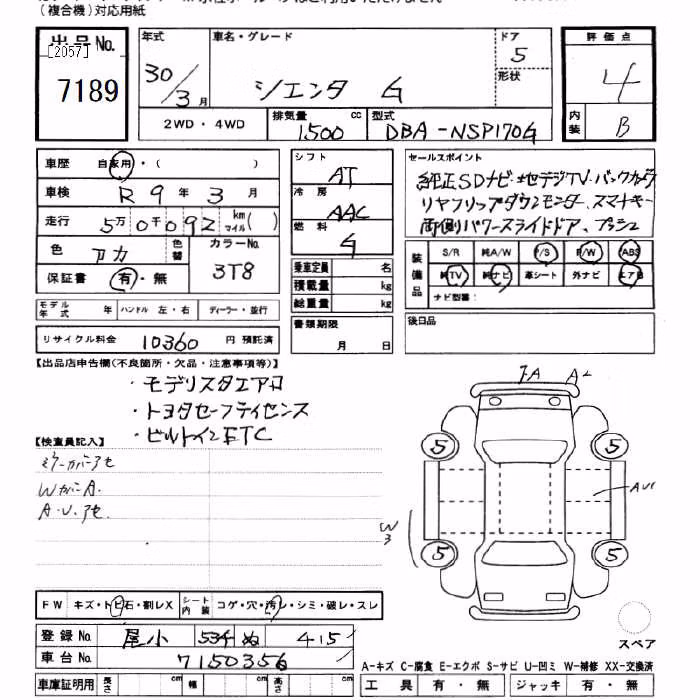 (複合機)対応用紙
出品No.
[2057]
7189
年式 30/3月
車名・グレード
シエンタ G
ドア 5
形状
評価点
4
内装 B
2WD・4WD
排気量 1500 cc
型式 DBA-NSP170G
車歴 自家用・( )
車検 R 9年 3月
走行 5万0千092 km マイル( )
色 アカ
色替
カラーNo. 3T8
保証書 有・無
モデル年式 年 ハンドル 左・右 ディーラー・並行
リサイクル料金 10360 円 預託済
シフト AT
冷房 AAC
燃料 G
乗車定員 名
積載量 kg
総重量 kg
書類期限 月 日
セールスポイント
純正SDナビ・地デジTV・バックカメラ
リヤフリップダウンモニター、スマートキー
両側パワースライドドア、プッシュ
装備品
S/R 純A/W P/S P/W ABS
純TV 純ナビ 革シート 外ナビ エアB
ナビ型番:
後日品
【出品店申告欄(不良箇所・欠品・注意事項等)】
・モデリスタエアロ
・トヨタセーフティセンス
・ビルトインETC
【検査員記入】
ミラーカバーアセ
WガバA.
A.U.アセ
A
5
5
5
5
W3
FW キズ・トビ石・割レX
シート内装 コゲ・穴・汚レ・シミ・破レ・スレ
登録No. 尾小 534 ぬ 415
車台No. 7150356
車庫証明用 長さ cm 幅 cm 高さ cm
スペア
A-キズ C-腐食 E-エクボ S-サビ U-凹ミ W-補修 XX-交換済
工具 有・無 ジャッキ 有・無